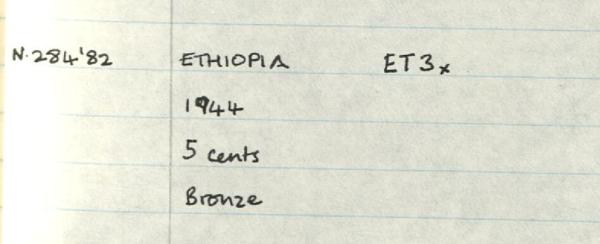 N.284'82 ETHIOPIA ET3x
1944
5 cents
Bronze